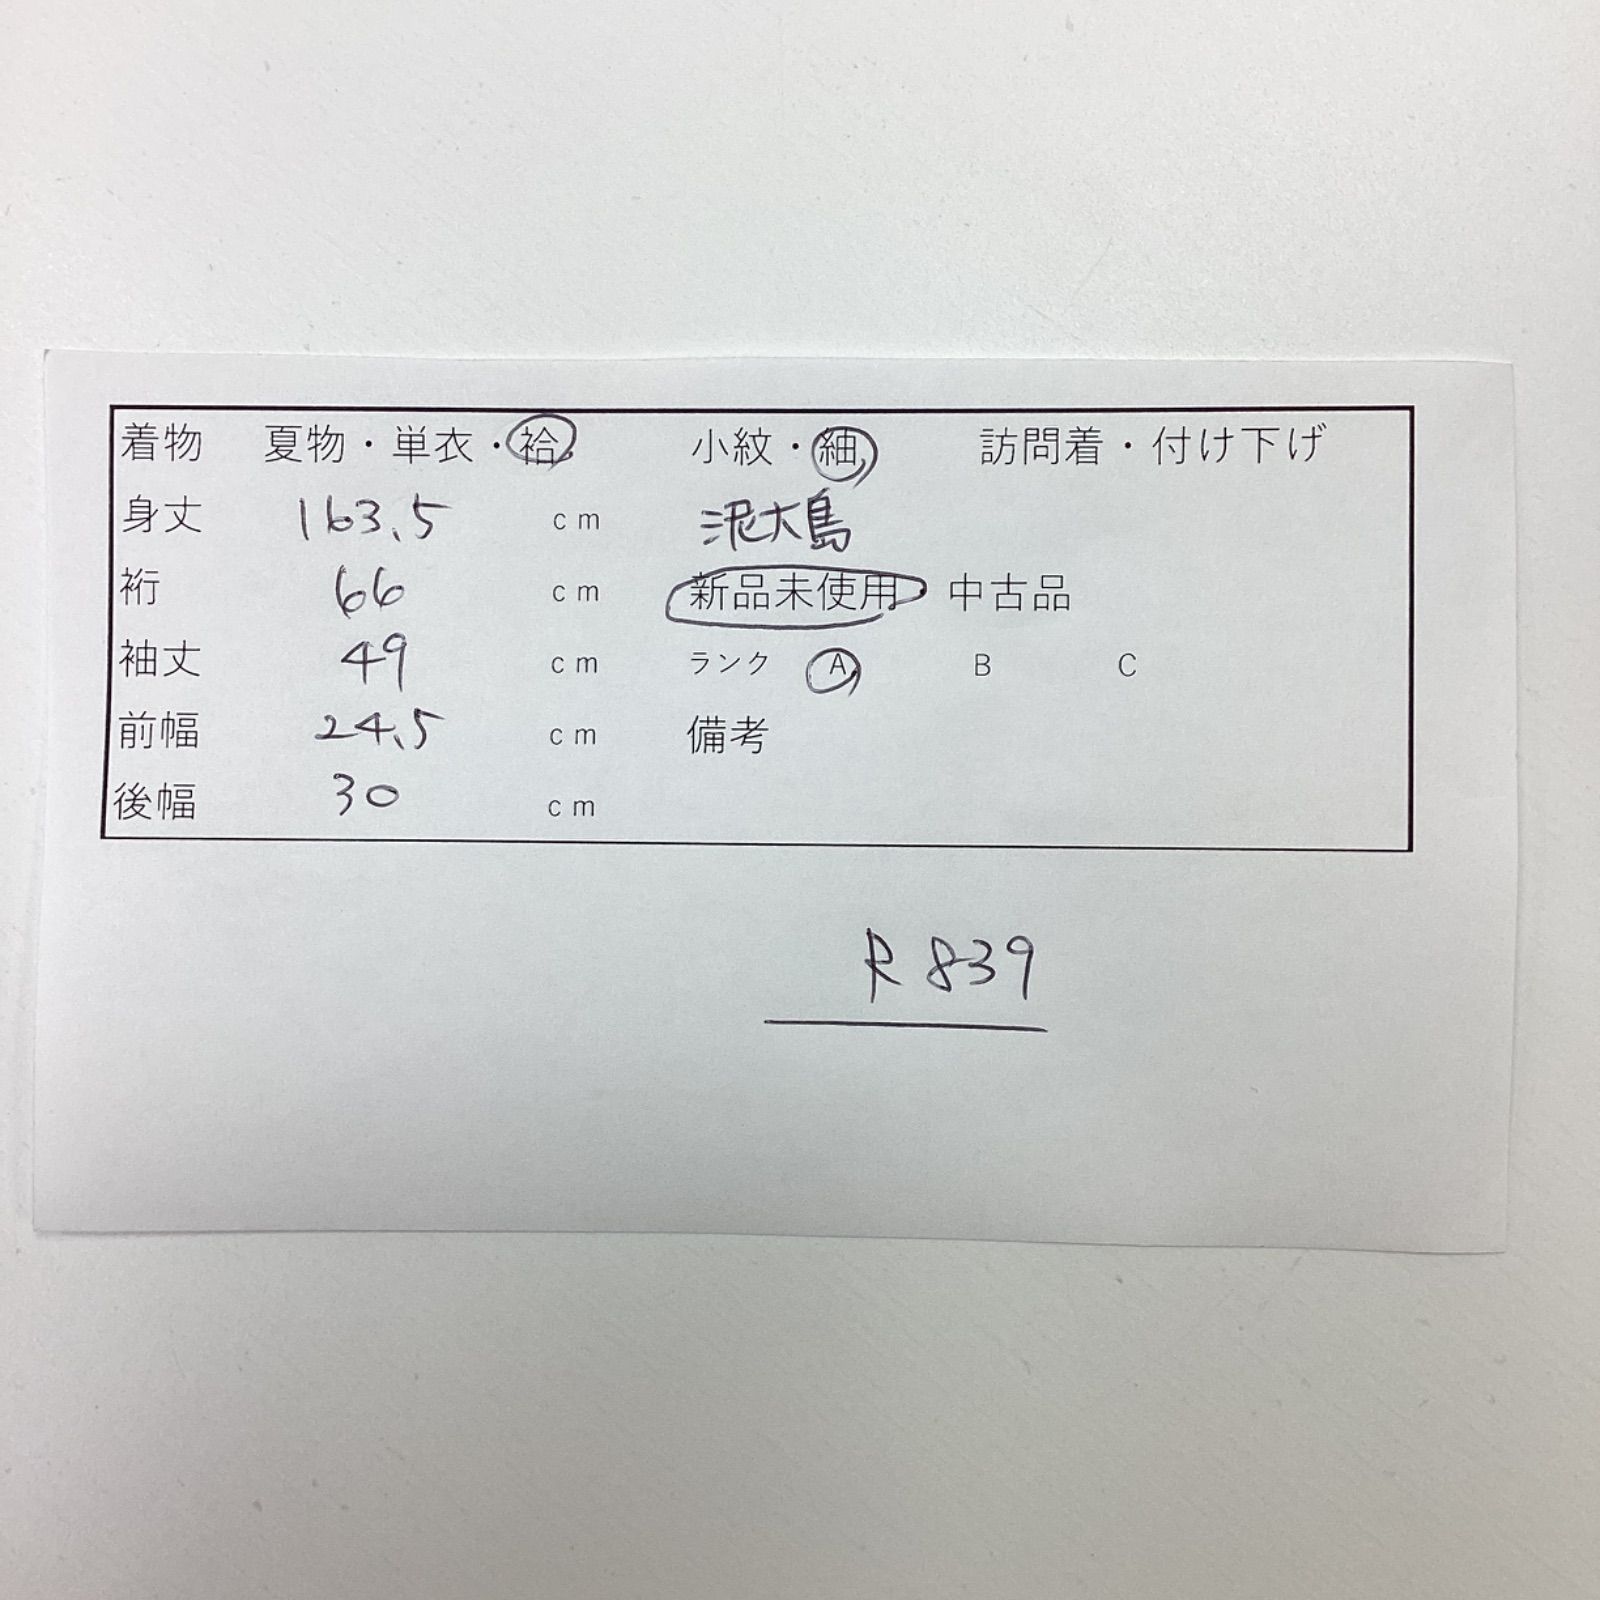 着物 夏物・単衣・袷 小紋・紬 訪問着・付け下げ
身丈 163.5 cm 泥大島
裄 66 cm 新品未使用 中古品
袖丈 49 cm ランク A B C
前幅 24.5 cm 備考
後幅 30 cm
R 839